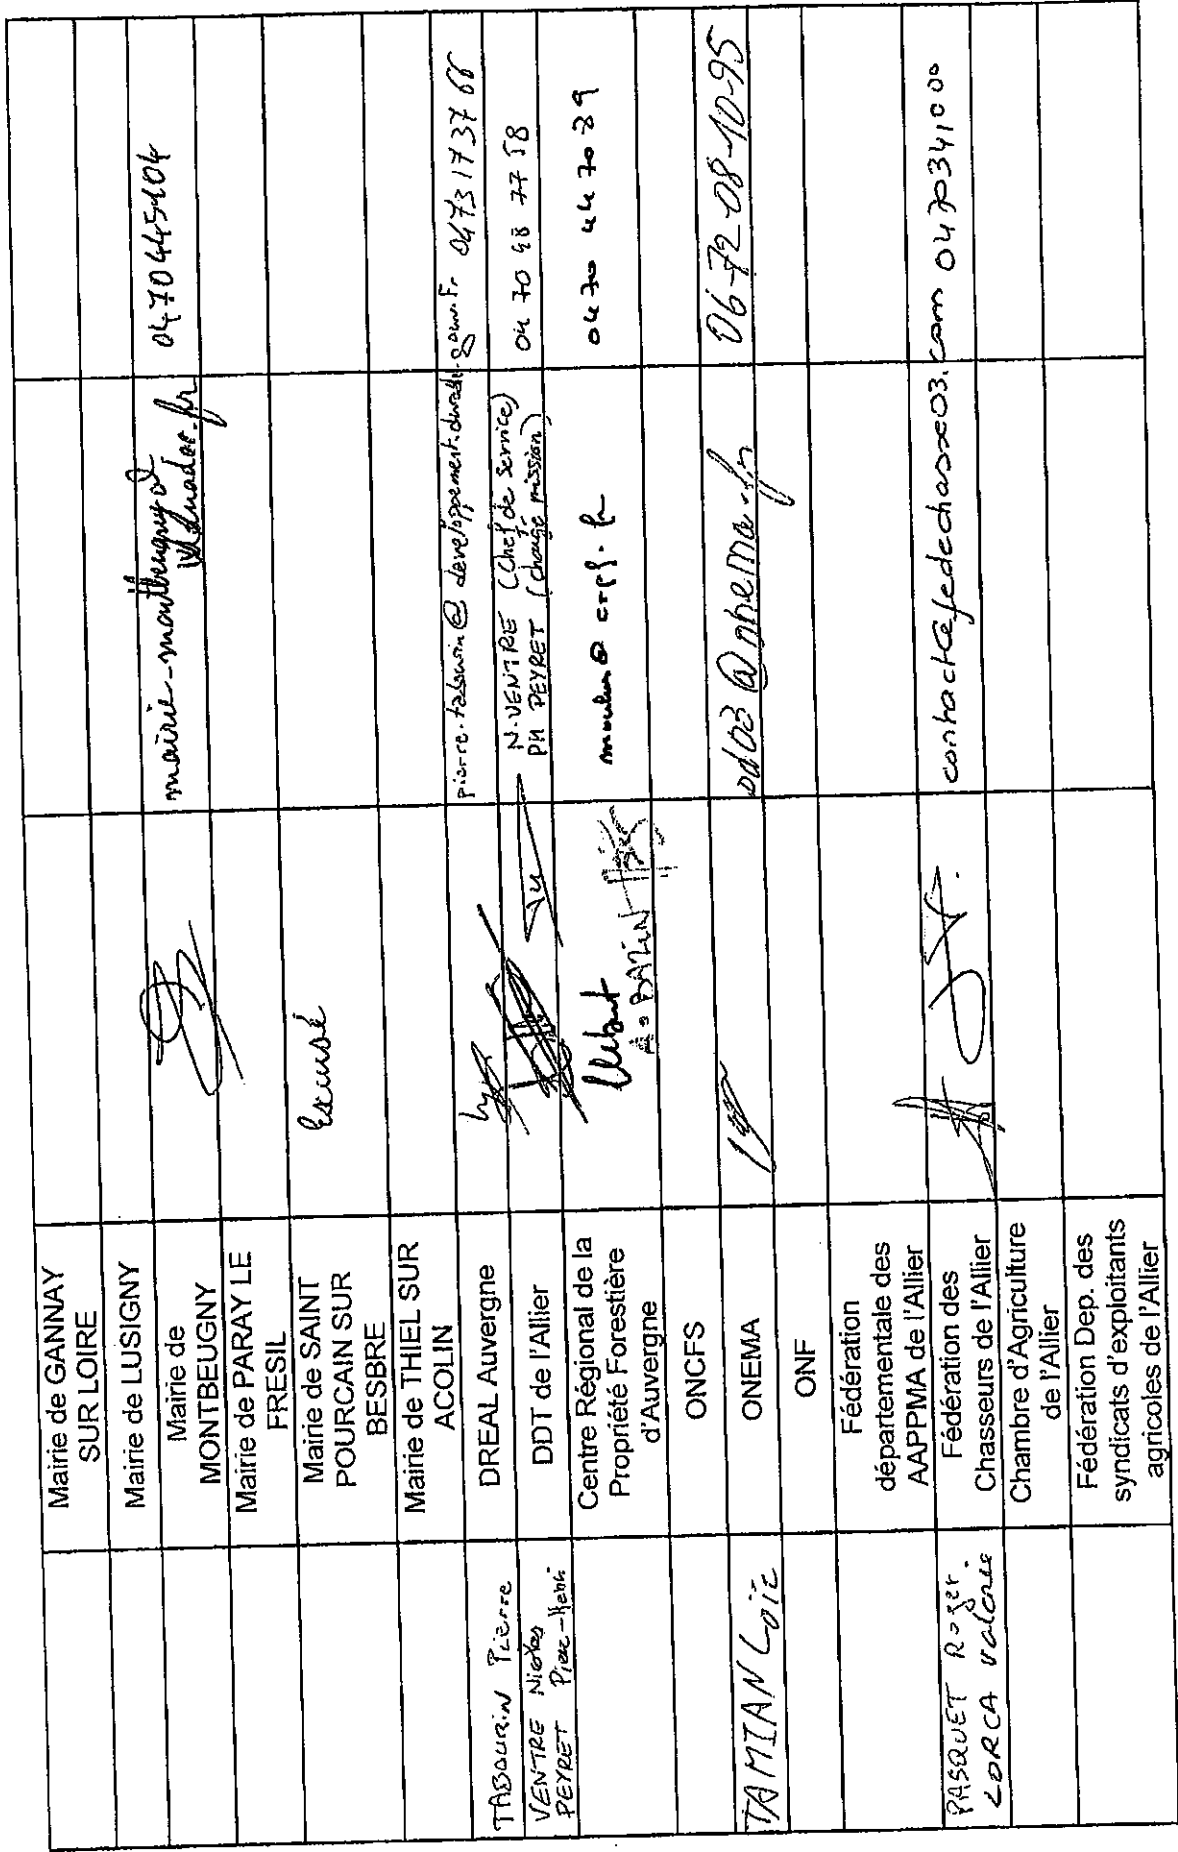 Mairie de GANNAY
SUR LOIRE
Mairie de LUSIGNY
Mairie de
MONTBEUGNY
mairie-montbeugny@
wanadoo.fr
0470445104
Mairie de PARAY LE
FRESIL
Mairie de SAINT
POURCAIN SUR
BESBRE
Excusé
Mairie de THIEL SUR
ACOLIN
TABOURIN Pierre
DREAL Auvergne
pierre.tabourin@developpement.durable.gouv.Fr
0473173766
VENTRE Nicolas
PEYRET Pierre-Henri
DDT de l'Allier
N. VENTRE (Chef de service)
PH PEYRET (chargé mission)
04 70 48 77 58
Centre Régional de la
Propriété Forestière
d'Auvergne
A. BAZIN
moulins@crpf.fr
0470 44 70 89
ONCFS
TAMIAN Loïc
ONEMA
sd03@onema.fr
06-72-08-10-95
ONF
Fédération
départementale des
AAPPMA de l'Allier
PASQUET Roger.
LORCA Valérie
Fédération des
Chasseurs de l'Allier
contact@fedechasse03.com
0470341000
Chambre d'Agriculture
de l'Allier
Fédération Dep. des
syndicats d'exploitants
agricoles de l'Allier